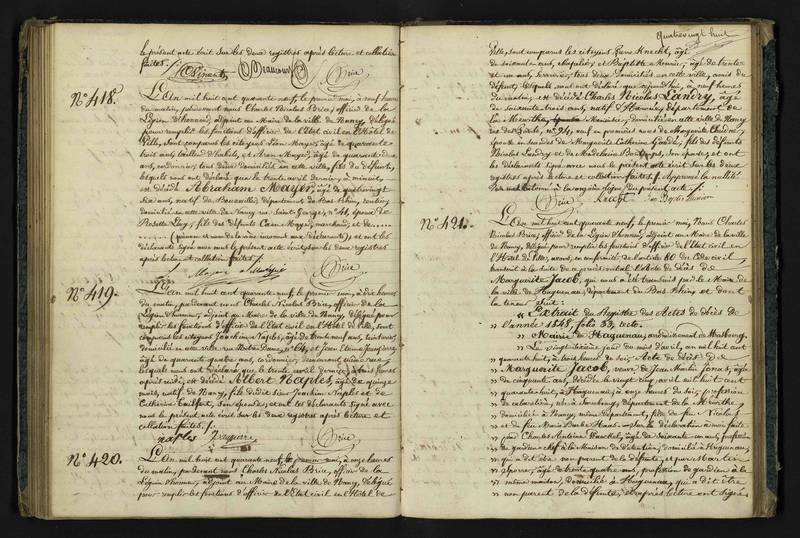 le présent acte écrit sur les deux registres après lecture et collation
faites.
Brice
N.º 418.
L'An mil huit cent quarante neuf, le premier mai, à neuf heures
du matin, pardevant nous Charles Nicolas Brice, officier de la
Légion d'honneur, adjoint au Maire de la ville de Nancy, délégué
pour remplir les fonctions d'officier de l'Etat civil en l'Hôtel de
Ville, sont comparus les citoyens Léon Mayer, âgé de quarante
trois ans, et Aron Mayer, âgé de quarante
ans, tous deux domiciliés en cette ville, fils du défunt,
lesquels nous ont déclaré que le trente avril dernier, à minuit,
est décédé Abraham Mayer, âgé de quatrevingt
six ans, natif de département du Bas Rhin,
domicilié en cette ville de Nancy rue Saint Georges, n.º époux de
Rosette Lévy, fils des défunts Mayer, marchand, et de
(prénom et nom de la mère inconnus aux déclarants); et ont les
déclarants signé avec nous le présent acte écrit sur les deux registres
après lecture et collation faites.
Brice
N.º 419.
L'An mil huit cent quarante neuf, le premier mai, à dix heures
du matin, pardevant nous Charles Nicolas Brice, officier de la
Légion d'honneur, adjoint au Maire de la ville de Nancy, délégué pour
remplir les fonctions d'officier de l'Etat civil en l'Hôtel de Ville, sont
comparus les citoyens Joachim Naples, âgé de trente neuf ans,
domicilié en cette ville rue Notre Dame, et Jean Etienne
âgé de quarante quatre ans, cordonnier, demeurant même rue,
lesquels nous ont déclaré que le trente avril dernier, à trois heures
après midi, est décédé Albert Naples, âgé de quinze
mois, natif de Nancy, fils dudit sieur Joachim Naples et de
Catherine son épouse; et ont les déclarants signé avec
nous le présent acte écrit sur les deux registres après lecture et
collation faites.
naples Brice
N.º 420.
L'An mil huit cent quarante neuf, le premier mai, à onze heures
du matin, pardevant nous Charles Nicolas Brice, officier de la
Légion d'honneur, adjoint au Maire de la ville de Nancy, délégué
pour remplir les fonctions d'officier de l'Etat civil en l'Hôtel de
Quatrevingt huit
Ville, sont comparus les citoyens Knecht, âgé
de soixante ans, chapelier, et Baptiste Mourier, âgé de trente
et un ans, serrurier, tous deux domiciliés en cette ville, amis du
défunt, lesquels nous ont déclaré que aujourd'hui, à neuf heures
du matin, est décédé Charles Nicolas Landry, âgé
de soixante trois ans, natif d' département de
la Meurthe, domicilié en cette ville de Nancy
n.º 94, veuf en premières noces de Marguerite
époux en secondes de Marguerite Catherine fils des défunts
Nicolas Landry et de Madelaine son épouse; et ont
les déclarants signé avec nous le présent acte écrit sur les deux
registres après lecture et collation faites. Approuvé la nullité
à la ligne du présent acte.
Brice Knecht
N.º 421.
L'An mil huit cent quarante neuf, le premier mai, Nous Charles
Nicolas Brice, officier de la Légion d'honneur, adjoint au Maire de la ville
de Nancy, délégué pour remplir les fonctions d'officier de l'Etat civil en
l'Hôtel de Ville, avons, en conformité de l'article 80 du Code civil,
transcrit à la suite de ce procès verbal l'Acte de décès de
Marguerite Jacob, qui nous a été transmis par le Maire de
la ville de Haguenau, département du Bas Rhin et dont
la teneur suit:
« Extrait du Registre des Actes de décès de
» l'année 1848, folio 33, recto.
» Mairie de Haguenau, arrondissement de Strasbourg.
» Le vingt sixième jour du mois d'avril, an mil huit cent
» quarante huit, à trois heures du soir, Acte de décès de
» Marguerite Jacob, veuve de Jean Martin Jonas, âgée
» de cinquante ans, décédée le vingt cinq avril mil huit cent
» quarante huit, à Haguenau, à onze heures du soir, profession
» de née à Sarrebourg, département de la Meurthe,
» domiciliée à Nancy, même département, fille de feu Nicolas
» et de feu Marie Barbe Haut. Sur la déclaration à moi faite
» par Charles Antoine âgé de soixante un ans, profession
» de gardien chef à la Maison de détention, domicilié à Haguenau,
» qui a dit être non parent de la défunte, et par Martin
» âgé de trente quatre ans, profession de gardien à la
» même maison, domicilié à Haguenau, qui a dit être
» non parent de la défunte, et après lecture ont signé